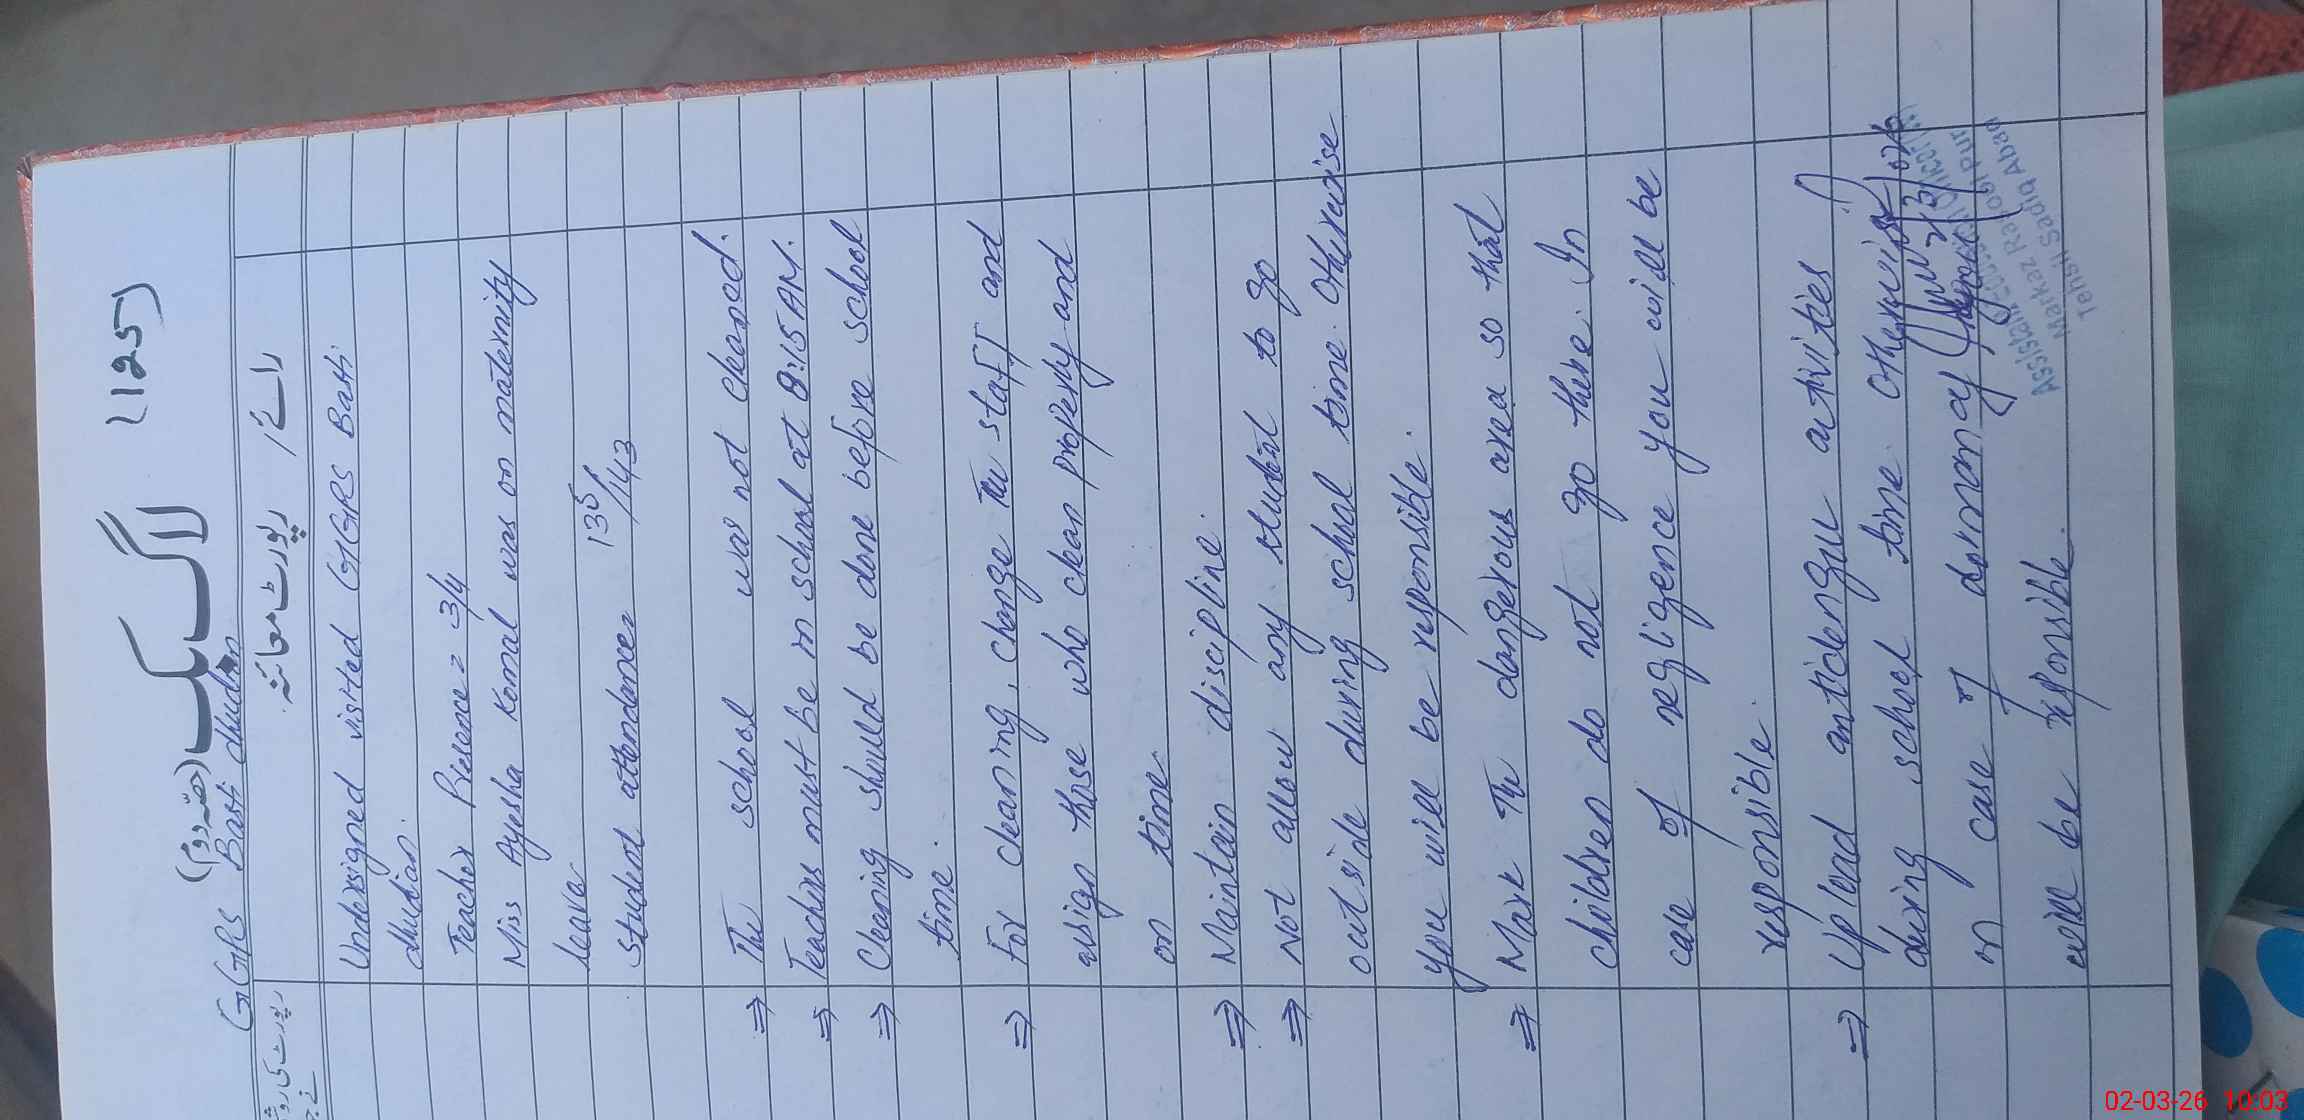 (125)
لاگ بک (حصّہ دوم)
GGPS Basti dhudian
رائے / رپورٹ معائنہ
رپورٹ کی رو
Undersigned visited GGPS Basti
dhudian.
Teacher Presence = 3/4
Miss Ayesha Komal was on maternity
leave
Student attendance = 135/143
⇒ The school was not cleaned.
⇒ Teachers must be in school at 8:15 AM.
⇒ Cleaning should be done before school
time.
⇒ For cleaning, change the staff and
assign those who clean properly and
on time
⇒ Maintain discipline.
⇒ Not allow any student to go
outside during school time. Otherwise
you will be responsible.
⇒ Mark the dangerous area so that
children do not go there. In
case of negligence you will be
responsible.
⇒ Upload antidengu activities
during school time. Otherwise
in case of dormancy
will be responsible.
Assistant Education Officer
Markaz Rasool Pur
Tehsil Sadiq Abad
02-03-26 10:03